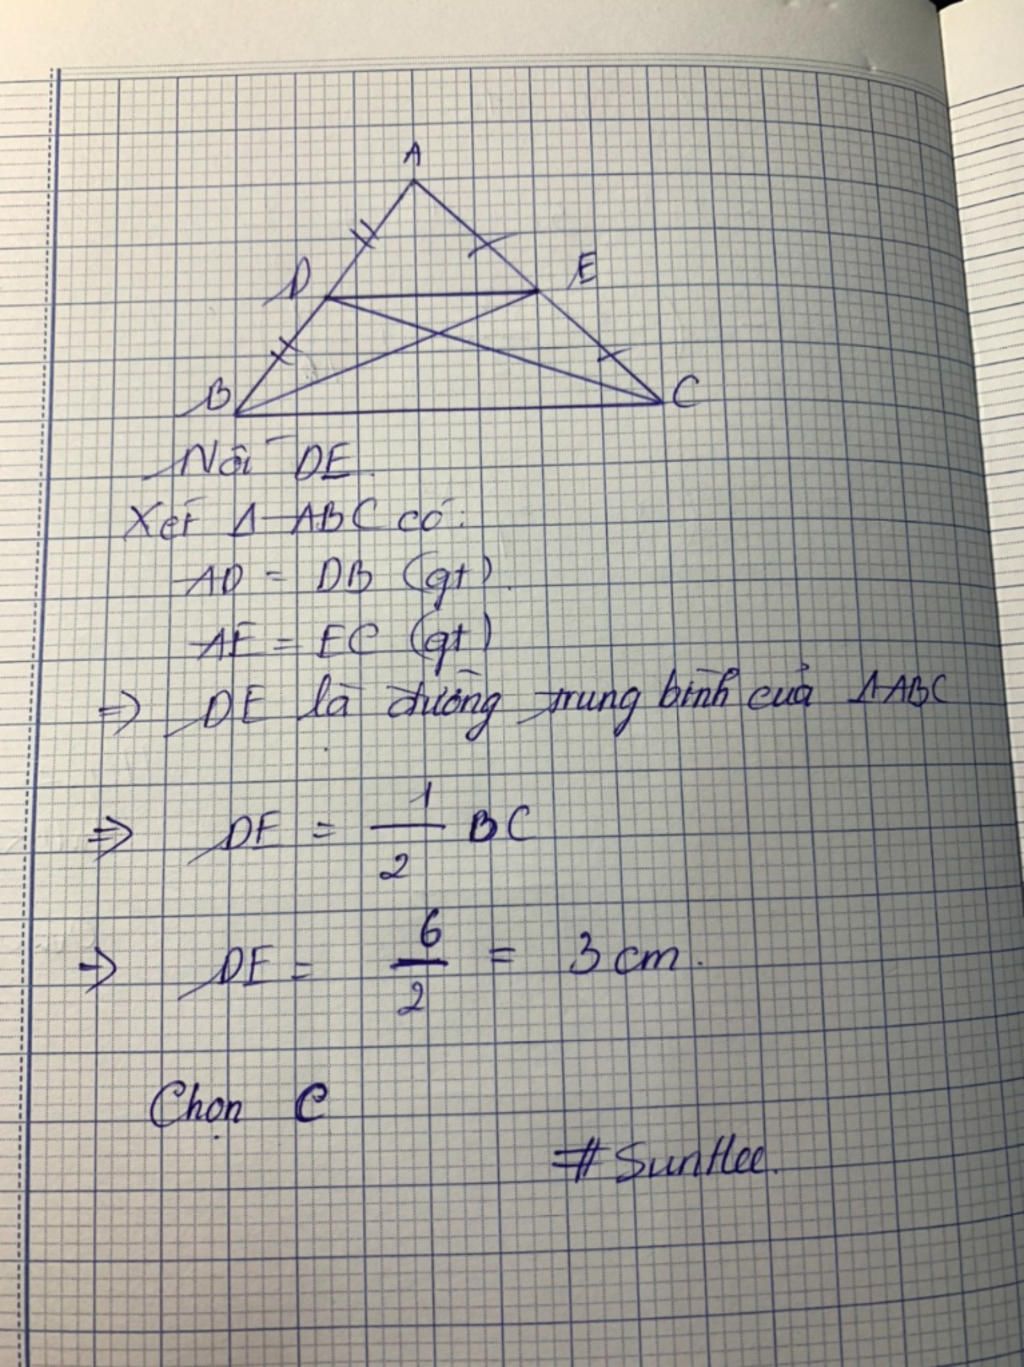 A
D
E
B
C
Nối DE.
Xét Δ ABC có:
AD = DB (gt).
AE = EC (gt)
=> DE là đường trung bình của ΔABC
=> DE = 1/2 BC
=> DE = 6/2 = 3 cm.
Chọn C
#SunHee.